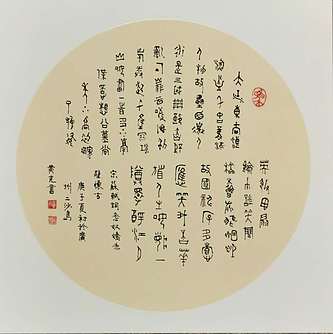 大江東去浪
淘盡千古風流
人物故壘西邊人
道是三國周郎赤壁
亂石穿空驚濤拍
岸卷起千堆雪江
山如畫一時多少豪
傑遙想公瑾當
年小喬初嫁
了雄姿
英發羽扇
綸巾談笑間
檣櫓灰飛煙滅
故國神游多情
應笑我早生華
髮人生如夢一
尊還酹江月
宋蘇軾詞念奴嬌赤
壁懷古
庚子夏初於廣
州二沙島